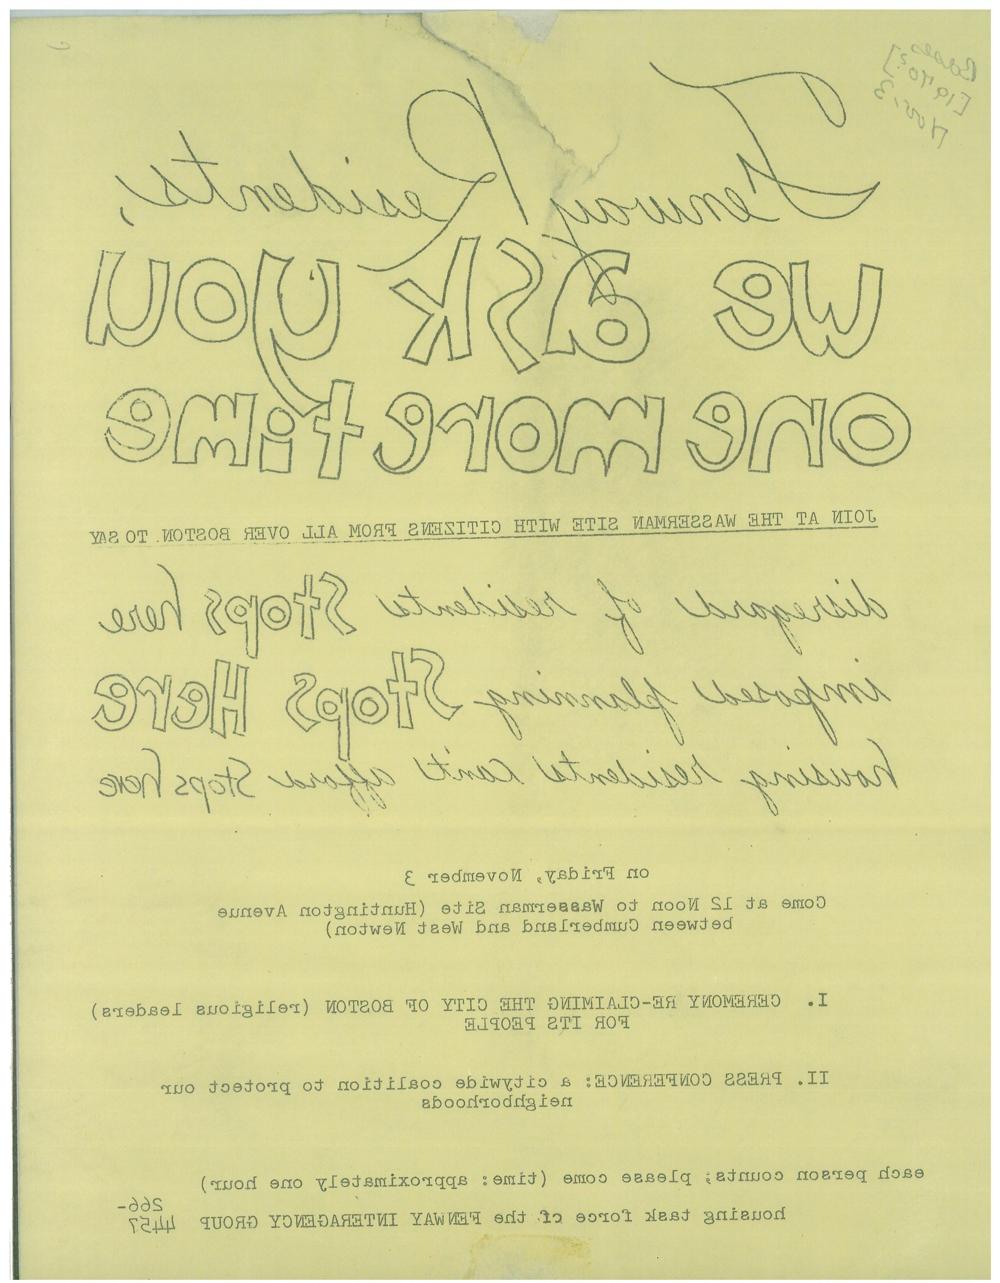 Roses
[1970?]
Nov. 3
Fenway Residents,
we ask you
one more time
JOIN AT THE WASSERMAN SITE WITH CITIZENS FROM ALL OVER BOSTON TO SAY
disregard of residents Stops here
imposed planning Stops Here
housing residents can't afford Stops here
on Friday, November 3
Come at 12 Noon to Wasserman Site (Huntington Avenue
between Cumberland and West Newton)
I. CEREMONY RE-CLAIMING THE CITY OF BOSTON (religious leaders)
FOR ITS PEOPLE
II. PRESS CONFERENCE: a citywide coalition to protect our
neighborhoods
each person counts; please come (time: approximately one hour)
housing task force of the FENWAY INTERAGENCY GROUP 266-
4457